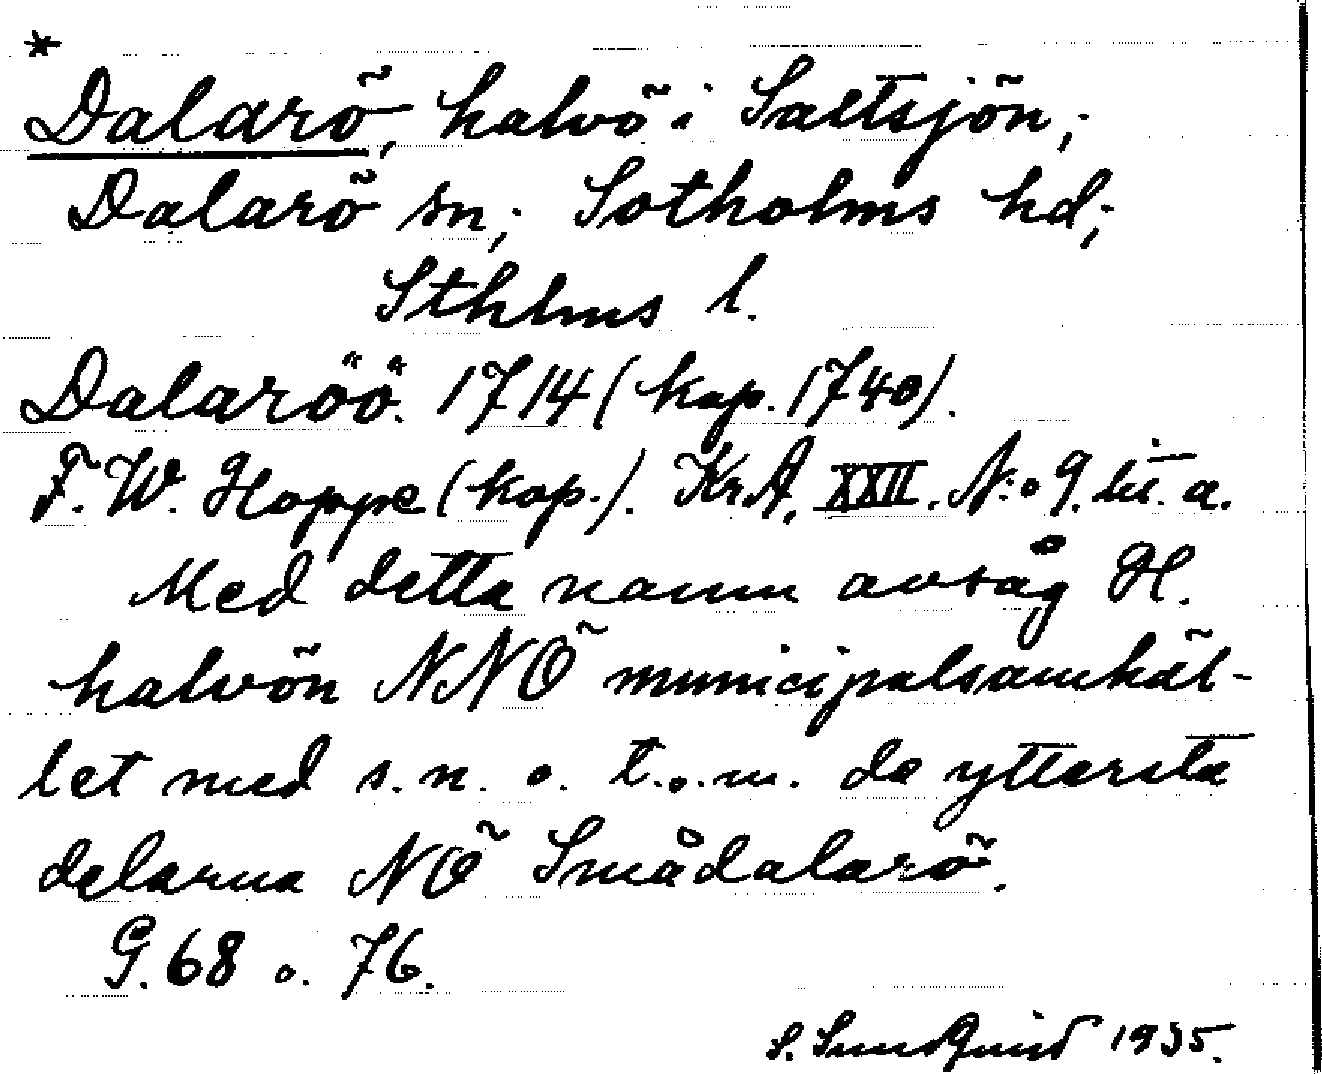 *
Dalarö, halvö i Saltsjön;
Dalarö sn; Sotholms hd;
Sthlms l.
Dalaröö. 1714 (kop. 1740).
F. W. Hoppe (kop.). Kr.A. XXII. N:o 9. lit. a.
Med detta namn avsåg H.
halvön NNÖ municipalsamhäl-
let med s. n. o. t.o.m. de yttersta
delarna NÖ Smådalarö.
G. 68 o. 76.
S. Sundquist 1935.